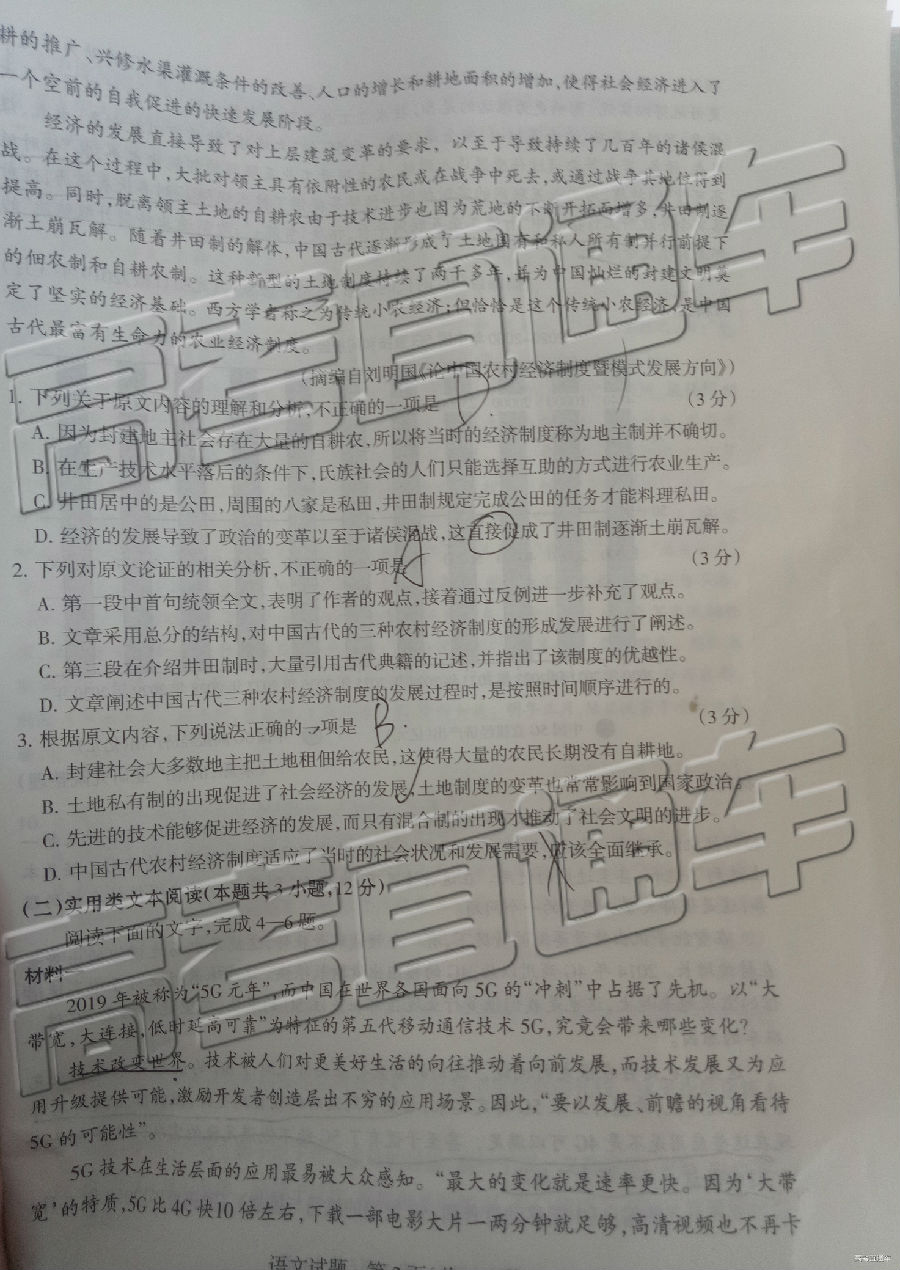 耕的推广、兴修水渠灌溉条件的改善、人口的增长和耕地面积的增加,使得社会经济进入了
一个空前的自我促进的快速发展阶段。
经济的发展直接导致了对上层建筑变革的要求，以至于导致持续了几百年的诸侯混
战。在这个过程中,大批对领主具有依附性的农民或在战争中死去,或通过战争其地位得到
提高。同时,脱离领主土地的自耕农由于技术进步也因为荒地的不断开拓而增多,井田制逐
渐土崩瓦解。随着井田制的解体,中国古代逐渐形成了土地国有和私人所有制并行前提下
的佃农制和自耕农制。这种新型的土地制度持续了两千多年,并为中国灿烂的封建文明奠
定了坚实的经济基础。西方学者称之为传统小农经济;但恰恰是这个传统小农经济,是中国
古代最富有生命力的农业经济制度。
(摘编自刘明国《论中国农村经济制度暨模式发展方向》)
1. 下列关于原文内容的理解和分析,不正确的一项是 D . (3分)
A. 因为封建地主社会存在大量的自耕农,所以将当时的经济制度称为地主制并不确切。
B. 在生产技术水平落后的条件下,氏族社会的人们只能选择互助的方式进行农业生产。
C. 井田居中的是公田,周围的八家是私田,井田制规定完成公田的任务才能料理私田。
D. 经济的发展导致了政治的变革以至于诸侯混战,这直接促成了井田制逐渐土崩瓦解。
2. 下列对原文论证的相关分析,不正确的一项是 A (3分)
A. 第一段中首句统领全文,表明了作者的观点,接着通过反例进一步补充了观点。
B. 文章采用总分的结构,对中国古代的三种农村经济制度的形成发展进行了阐述。
C. 第三段在介绍井田制时,大量引用古代典籍的记述,并指出了该制度的优越性。
D. 文章阐述中国古代三种农村经济制度的发展过程时,是按照时间顺序进行的。
3. 根据原文内容,下列说法正确的一项是 B . (3分)
A. 封建社会大多数地主把土地租佃给农民,这使得大量的农民长期没有自耕地。
B. 土地私有制的出现促进了社会经济的发展,土地制度的变革也常常影响到国家政治。
C. 先进的技术能够促进经济的发展,而只有混合制的出现才推动了社会文明的进步。
D. 中国古代农村经济制度适应了当时的社会状况和发展需要,应该全面继承。
(二)实用类文本阅读(本题共3小题,12分)
阅读下面的文字,完成4—6题。
材料一
2019年被称为“5G元年”,而中国在世界各国面向5G的“冲刺”中占据了先机。以“大
带宽,大连接,低时延高可靠”为特征的第五代移动通信技术5G,究竟会带来哪些变化?
技术改变世界。技术被人们对更美好生活的向往推动着向前发展,而技术发展又为应
用升级提供可能,激励开发者创造层出不穷的应用场景。因此,“要以发展、前瞻的视角看待
5G的可能性”。
5G技术在生活层面的应用最易被大众感知。“最大的变化就是速率更快。因为‘大带
宽’的特质,5G比4G快10倍左右,下载一部电影大片一两分钟就足够,高清视频也不再卡
语文试题
高考直通车
高考直通车
高考直通车